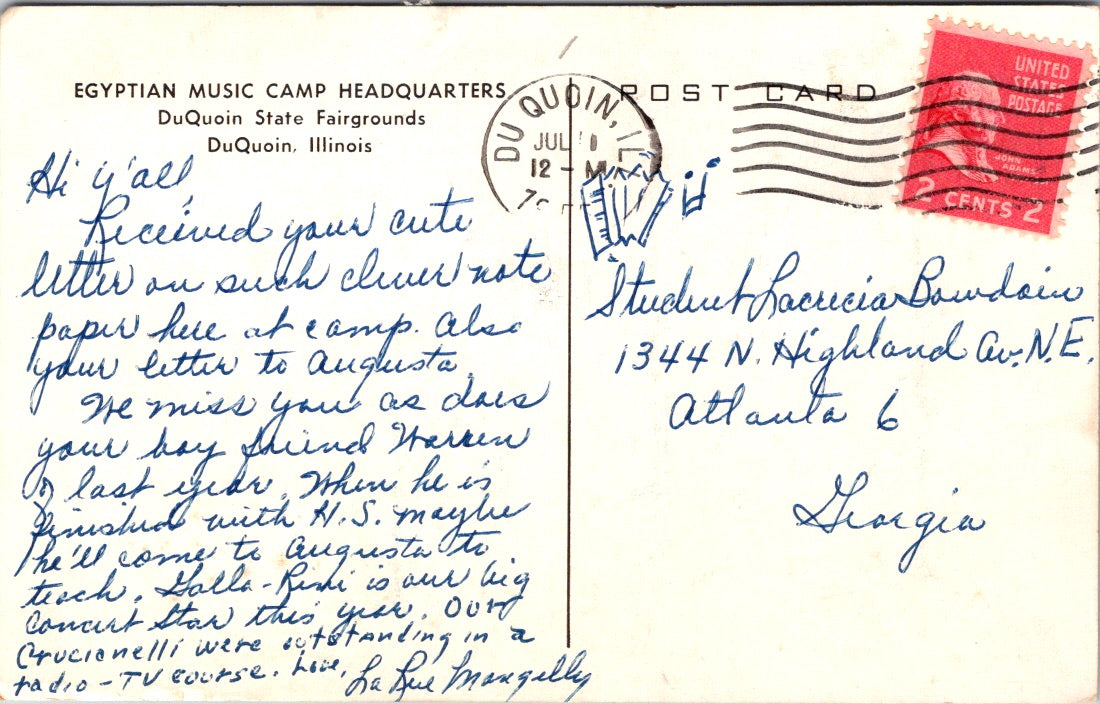 EGYPTIAN MUSIC CAMP HEADQUARTERS
DuQuoin State Fairgrounds
DuQuoin, Illinois
Hi y'all
Received your cute
letter on such clever note
paper here at camp. Also
your letter to Augusta.
We miss you as does
your boy friend Warren
of last year. When he is
finished with H.S. maybe
he'll come to Augusta to
teach. Galla-Rini is our big
concert star this year. Our
Crucianelli were outstanding in a
radio-TV course. Love,
La Rue Mangelly
POST CARD
DU QUOIN, ILL
JUL
12 - M
UNITED
STATES
POSTAGE
JOHN
ADAMS
2 CENTS 2
Student Lacrecia Bowdoin
1344 N. Highland Av. N.E.
Atlanta 6
Georgia